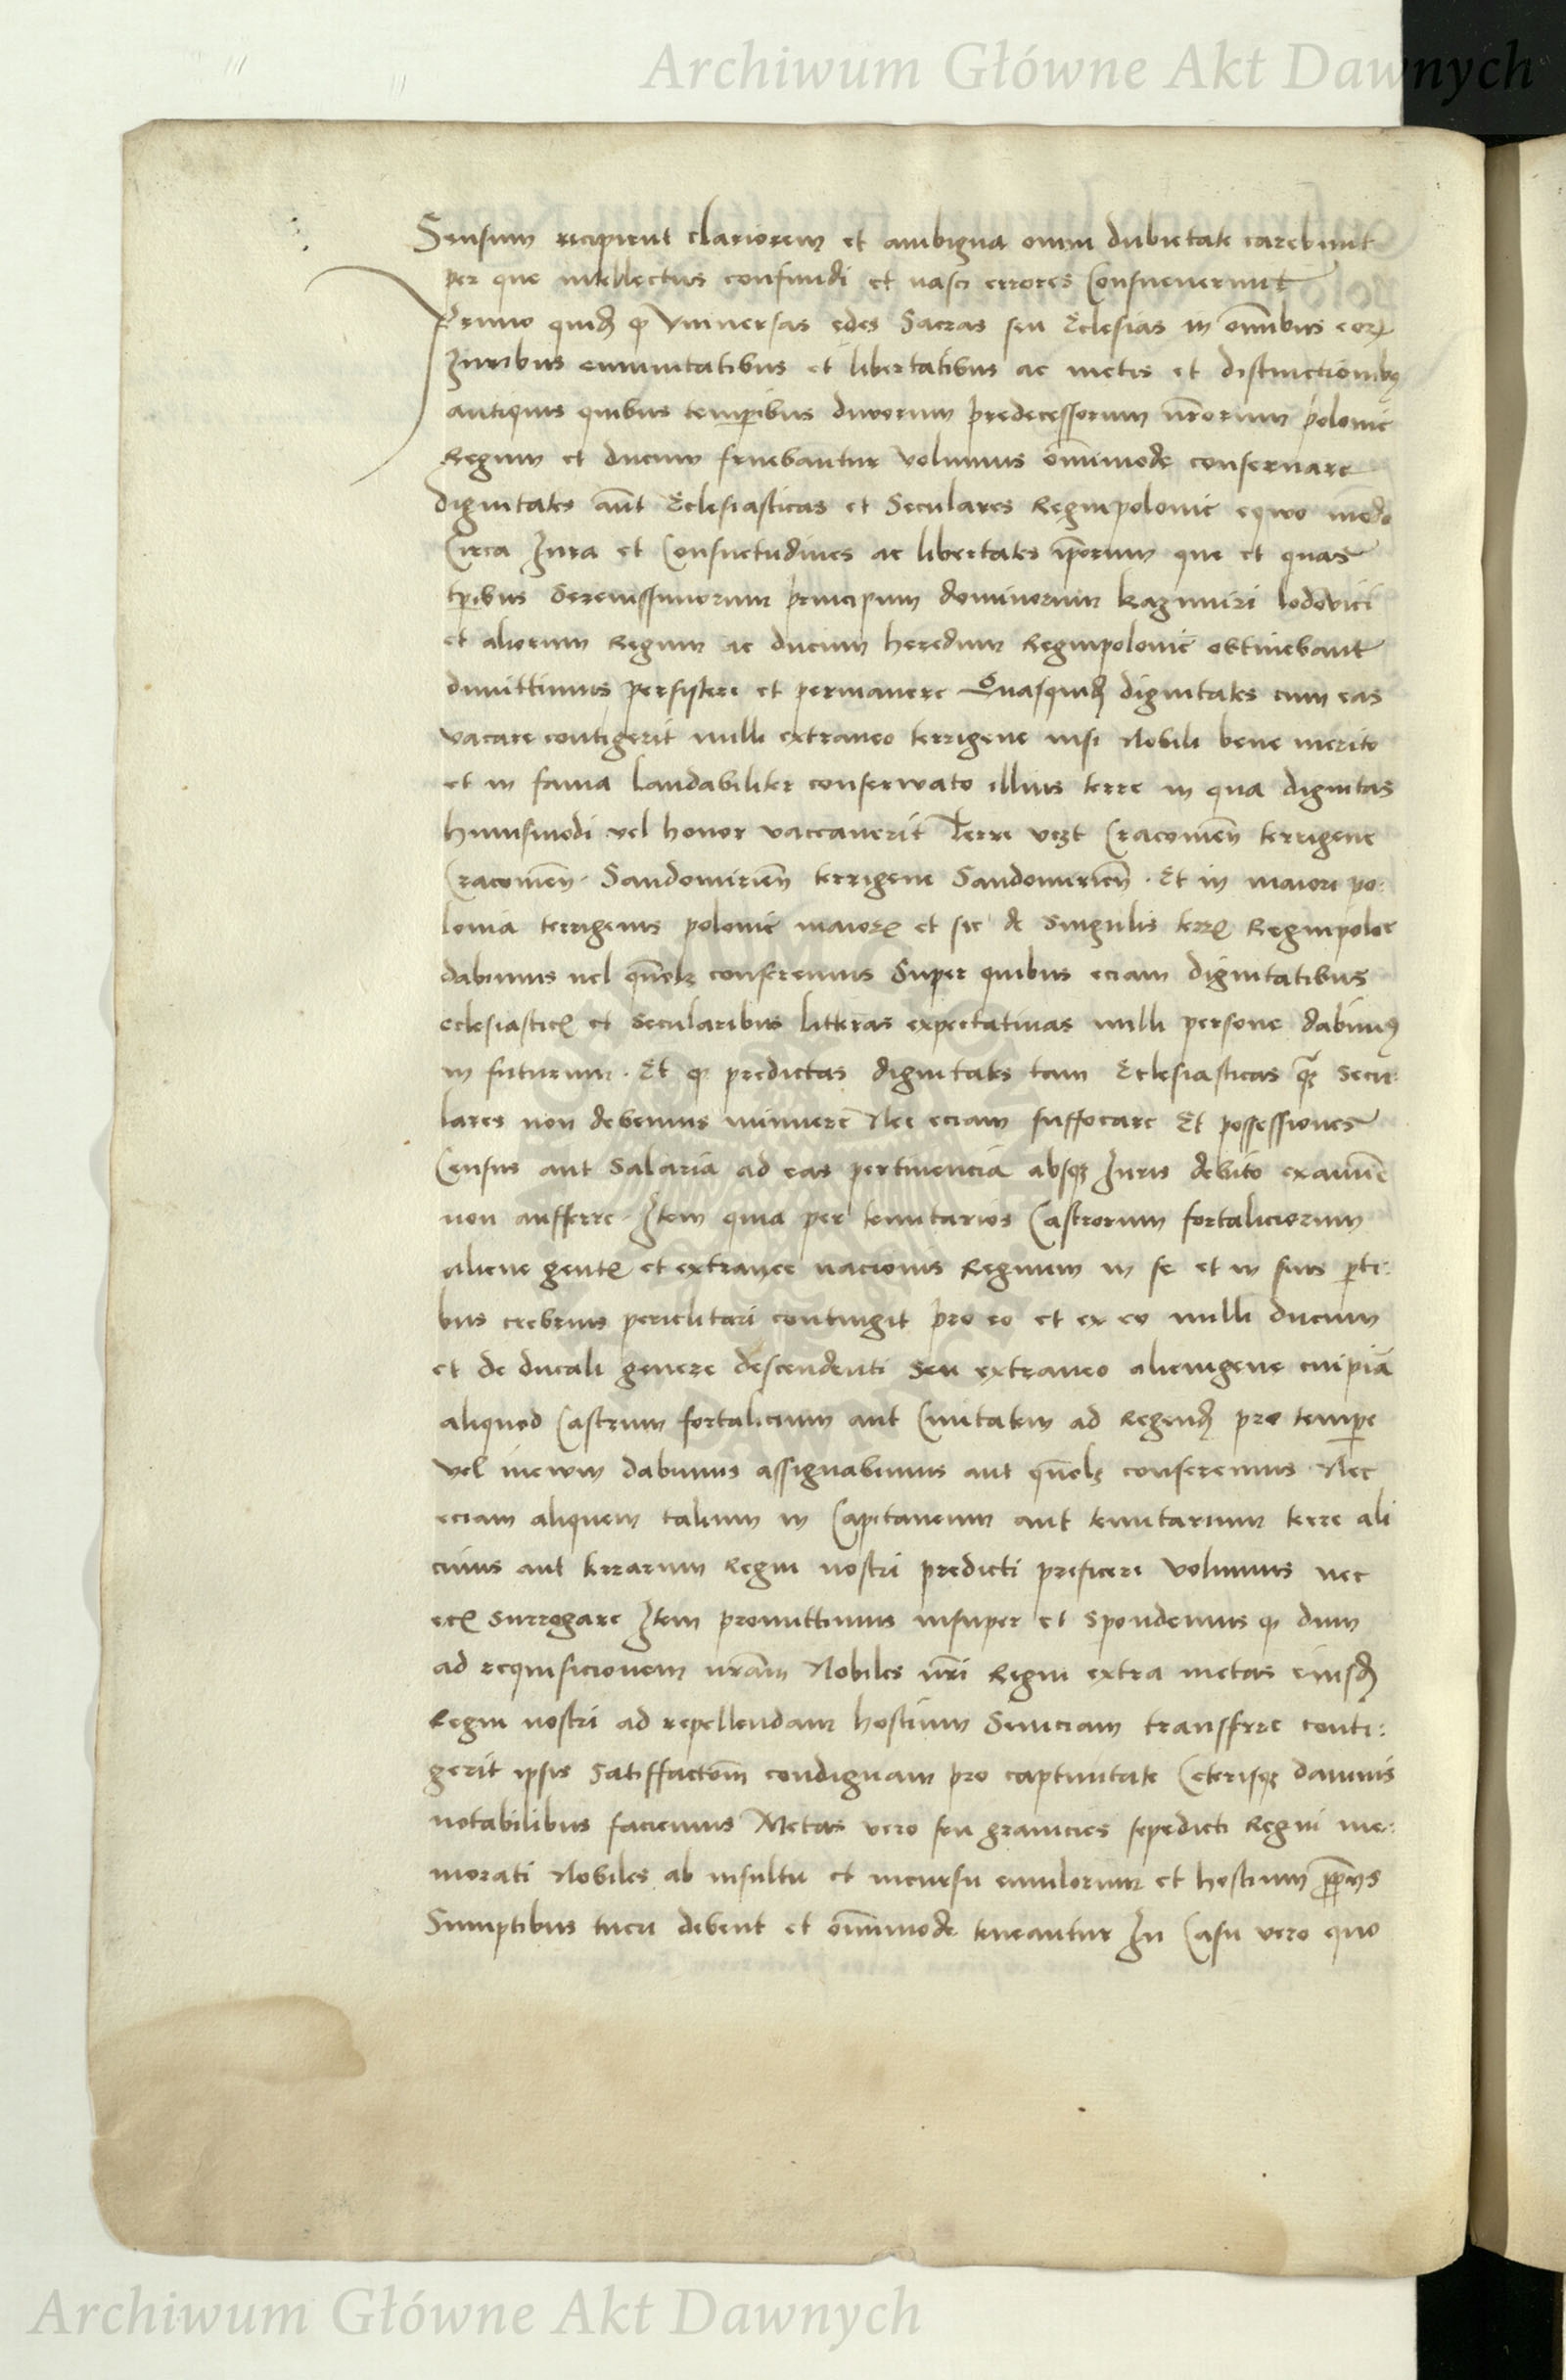 Archiwum Główne Akt Dawnych
Sensum recipient clariorem et ambigua omni dubietate carebunt
per que intellectus confundi et nasci errores Consueverunt
Primo quidē ꝙ Vniversas edes Sacras seu Eclesias in om̄ibus eorꝝ
Iuribus emunitatibus et libertatibus ac metis et distinctionibꝰ
antiquis quibus temp̄ibus divorum predecessorum nr̄orum polonie
Regum et ducum fruebantur volumus om̄imode conservare
dignitates aūt Eclesiasticas et Seculares Regnipolonie eqwo modo
Circa Iura et Consuetudines ac libertates ip̄orum que et quas
tp̄ibus Serenissimorum principum dominorum kazimiri lodovici
et aliorum Regum ac ducum heredum Regnipolonie obtinebant
dimittimus persistere et permanere Quasquidē dignitates cum eas
vacare contigerit nulli extraneo terrigene nisi Nobili bene merito
et in fama laudabiliter conserwato illius terre in qua dignitas
huiusmodi vel honor vaccaverit Terre vczt Cracovien̄ terrigene
Cracovien̄ · Sandomirien̄ terrigene Sandomirien̄ · Et in maiori po:
lonia terrigenis polonie maiorꝭ et sic de singulis terrꝭ Regnipoloe
dabimus vel qūolꝫ conferemus Super quibus eciam dignitatibus
eclesiasticꝭ et secularibus litteras expectativas nulli persone dabimꝰ
in futurum · Et ꝙ predictas dignitates tam Eclesiasticas qꝫ̄ Secu:
lares non debemus minuere Nec eciam suffocare Et possessiones
Census aut Salaria ad eas pertinencia absqꝫ Iuris debito examīe
non aufferre · Item quia per tenutarios Castrorum fortaliciorum
aliene gentꝭ et extranee nacionis Regnum in se et in suis p̱ti:
bus crebrius periclitari contingit pro eo et ex eo nulli ducum
et de ducali genere descendenti seu extraneo alienigene cuipiā
aliquod Castrum fortalicium aut Civitatem ad Regendū pro temp̱e
vel inewm dabimus assignabimus aut qūolꝫ conferemus · Nec
eciam aliquem talium in Capitaneum aut tenutarium terre ali
cuius aut terrarum Regni nostri predicti preficere volumus nec
ecꝭ surrogare Item promittimus insuper et spondemus ꝙ dum
ad requisicionem nr̄am Nobiles nr̄i Regni extra metas eiusdē
Regni nostri ad repellendam hostium Seviciam transferre conti:
gerit ipsis satiffactōm condignam pro captivitate Ceterisqꝫ damnis
notabilibus faciemus Metas vero seu granicies sepedicti Regni me:
morati Nobiles ab insultu et incursu emulorum et hostium ꝓprÿs
Sumptibus tueri debent et om̄imode teneantur In Casu vero quo
Archiwum Główne Akt Dawnych